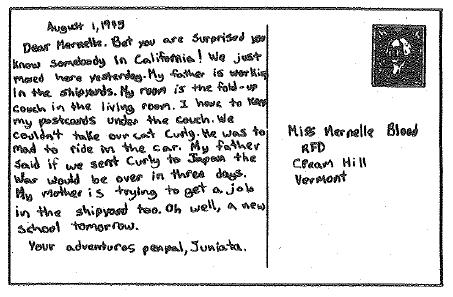 August 1, 1945
Dear Mernelle. Bet you are surprised you
know somebody in California! We just
moved here yesterday. My father is working
in the shipyards. My room is the fold-up
couch in the living room. I have to keep
my postcards under the couch. We
couldn't take our cat Curly. He was to
mad to ride in the car. My father
said if we sent Curly to Japan the
War would be over in three days.
My mother is trying to get a job
in the shipyard too. Oh well, a new
school tomorrow.
Your adventures penpal, Juniata.
Miss Mernelle Blood
RFD
Cream Hill
Vermont